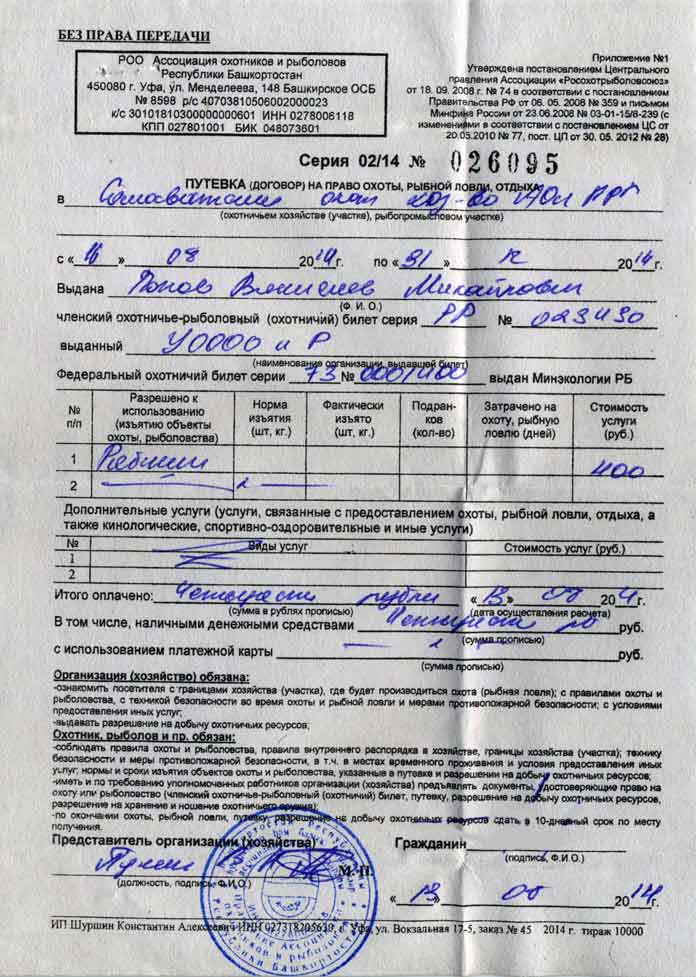 БЕЗ ПРАВА ПЕРЕДАЧИ
РОО Ассоциация охотников и рыболовов
Республики Башкортостан
450080 г. Уфа, ул. Менделеева, 148 Башкирское ОСБ
№ 8598 р/с 40703810506002000023
к/с 30101810300000000601 ИНН 0278006118
КПП 027801001 БИК 048073601
Приложение №1
Утверждена постановлением Центрального
правления Ассоциации «Росохотрыболовсоюз»
от 18. 09. 2008 г. № 74 в соответствии с постановлением
Правительства РФ от 06. 05. 2008 № 359 и письмом
Минфина России от 23.06.2008 № 03-01-15/8-239 (с
изменениями в соответствии с постановлением ЦС от
20.05.2010 № 77, пост. ЦП от 30. 05. 2012 № 28)
Серия 02/14 № 026095
ПУТЕВКА (ДОГОВОР) НА ПРАВО ОХОТЫ, РЫБНОЙ ЛОВЛИ, ОТДЫХА
в
(охотничьем хозяйстве (участке), рыбопромысловом участке)
с «16» 08 2014г. по «31» 12 2014г.
Выдана Попов Михайлович
(Ф. И. О.)
членский охотничье-рыболовный (охотничий) билет серия РР № 023430
выданный
(наименование организации, выдавшей билет)
Федеральный охотничий билет серии 73 № выдан Минэкологии РБ
№ п/п Разрешено к использованию (изъятию объекты охоты, рыболовства) Норма изъятия (шт, кг.) Фактически изъято (шт, кг.) Подран-ков (кол-во) Затрачено на охоту, рыбную ловлю (дней) Стоимость услуги (руб.)
1 400
2
Дополнительные услуги (услуги, связанные с предоставлением охоты, рыбной ловли, отдыха, а
также кинологические, спортивно-оздоровительные и иные услуги)
№ Виды услуг Стоимость услуг (руб.)
1
2
Итого оплачено: Четыреста рубли «13» 08 2014г.
(сумма в рублях прописью) (дата осуществления расчета)
В том числе, наличными денежными средствами Четыреста руб.
(сумма прописью)
с использованием платежной карты
(сумма прописью)
Организация (хозяйство) обязана:
-ознакомить посетителя с границами хозяйства (участка), где будет производиться охота (рыбная ловля); с правилами охоты и
рыболовства, с техникой безопасности во время охоты и рыбной ловли и мерами противопожарной безопасности; с условиями
предоставления иных услуг;
-выдавать разрешение на добычу охотничьих ресурсов;
Охотник, рыболов и пр. обязан:
-соблюдать правила охоты и рыболовства, правила внутреннего распорядка в хозяйстве, границы хозяйства (участка); технику
безопасности и меры противопожарной безопасности, в т.ч. в местах временного проживания и условия предоставления иных
услуг; нормы и сроки изъятия объектов охоты и рыболовства, указанные в путевке и разрешении на добычу охотничьих ресурсов;
-иметь и по требованию уполномоченных работников организации (хозяйства) предъявлять документы, удостоверяющие право на
охоту или рыболовство (членский охотничье-рыболовный (охотничий) билет, путевку, разрешение на добычу охотничьих ресурсов,
разрешение на хранение и ношение охотничьего оружия);
-по окончании охоты, рыбной ловли, путевку, разрешение на добычу охотничьих ресурсов сдать в 10-дневный срок по месту
получения.
Представитель организации (хозяйства) Гражданин
М.П. (подпись, Ф.И.О.)
(должность, подпись, Ф.И.О.)
«13» 08 2014г.
ИП Шуршин Константин Алексеевич ИНН 027318205639, г. Уфа, ул. Вокзальная 17-5, заказ № 45 2014 г. тираж 10000